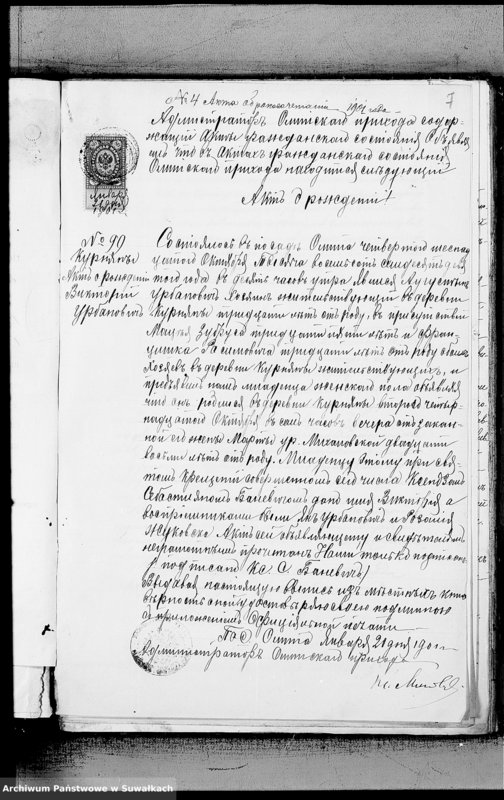 № 4 Акта бракосочетанія 1901 года
7
Администраторъ Олитскаго прихода содер-
жащій Акты гражданскаго состоянія Объявля
етъ что въ Актахъ гражданскаго состоянія
Олитскаго прихода находится слѣдующій
Актъ о рожденіи
№ 99
Курняны
Актъ о рожденіи
Викторіи
Урбановичъ
Состоялось въ посадѣ Олита четвертого шестнад
цатаго Октября мѣсяца восемьсотъ семдесятъ
того года въ десять часовъ утра. Явился Августинъ
Урбановичъ хозяинъ жительствующій въ деревни
Курняны тридцати лѣтъ отъ роду, въ присутствіи
тридцати пяти лѣтъ и Фран-
цишка тридцати лѣтъ отъ роду обоихъ
хозяевъ въ деревни Курняны жительствующихъ, и
предъявилъ намъ младенца женскаго пола объявляя
что онъ родился въ деревни Курняны второго четыр-
надцатаго Октября въ семь часовъ вечера отъ закон-
ной его жены Марты ур. Михаловской двадцати
восьми лѣтъ отъ роду. Младенцу этому при свя-
томъ крещеніи совершенномъ сего числа Ксендзомъ
Себастіяномъ Баневичомъ дано имя Викторія а
воспріемниками были Янъ Урбановичъ и Розалія
Жуковска. Актъ сей объявляющему и свидѣтелямъ
неграмотнымъ прочитанъ Нами только подписанъ
/ подписалъ Кс. С. Баневичъ /
Выдавая настоящую выпись изъ мѣстныхъ книгъ
вѣрность оной удостовѣряю своею подписью
съ приложеніемъ Оффиціяльной печати
Пос. Олита Января 21 дня 1901 г.
Администраторъ Олитскаго прихода
Archiwum Państwowe w Suwałkach